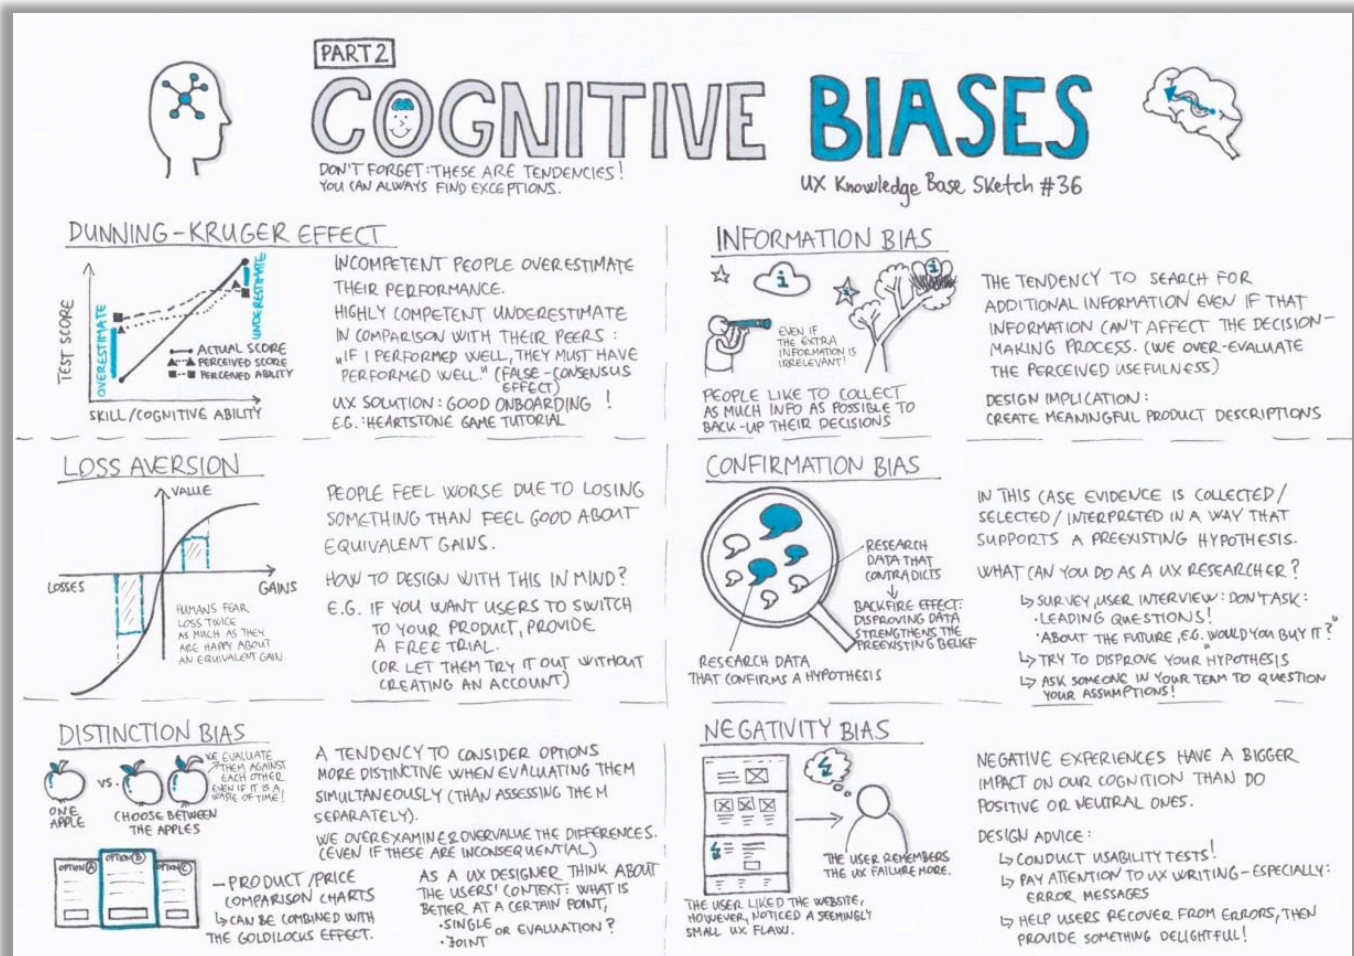 PART 2
COGNITIVE BIASES
DON'T FORGET: THESE ARE TENDENCIES!
YOU CAN ALWAYS FIND EXCEPTIONS.
UX Knowledge Base Sketch #36
DUNNING-KRUGER EFFECT
TEST SCORE
OVERESTIMATE
UNDERESTIMATE
ACTUAL SCORE
PERCEIVED SCORE
PERCEIVED ABILITY
SKILL/COGNITIVE ABILITY
INCOMPETENT PEOPLE OVERESTIMATE
THEIR PERFORMANCE.
HIGHLY COMPETENT UNDERESTIMATE
IN COMPARISON WITH THEIR PEERS:
„IF I PERFORMED WELL, THEY MUST HAVE
PERFORMED WELL." (FALSE-CONSENSUS
EFFECT)
UX SOLUTION: GOOD ONBOARDING!
E.G.: HEARTSTONE GAME TUTORIAL
INFORMATION BIAS
i
i
EVEN IF
THE EXTRA
INFORMATION IS
IRRELEVANT!
PEOPLE LIKE TO COLLECT
AS MUCH INFO AS POSSIBLE TO
BACK-UP THEIR DECISIONS
THE TENDENCY TO SEARCH FOR
ADDITIONAL INFORMATION EVEN IF THAT
INFORMATION CAN'T AFFECT THE DECISION-
MAKING PROCESS. (WE OVER-EVALUATE
THE PERCEIVED USEFULNESS)
DESIGN IMPLICATION:
CREATE MEANINGFUL PRODUCT DESCRIPTIONS
LOSS AVERSION
VALUE
LOSSES
GAINS
HUMANS FEAR
LOSS TWICE
AS MUCH AS THEY
ARE HAPPY ABOUT
AN EQUIVALENT GAIN.
PEOPLE FEEL WORSE DUE TO LOSING
SOMETHING THAN FEEL GOOD ABOUT
EQUIVALENT GAINS.
HOW TO DESIGN WITH THIS IN MIND?
E.G. IF YOU WANT USERS TO SWITCH
TO YOUR PRODUCT, PROVIDE
A FREE TRIAL.
(OR LET THEM TRY IT OUT WITHOUT
CREATING AN ACCOUNT)
CONFIRMATION BIAS
RESEARCH
DATA THAT
CONTRADICTS
BACKFIRE EFFECT:
DISPROVING DATA
STRENGTHENS THE
PREEXISTING BELIEF
RESEARCH DATA
THAT CONFIRMS A HYPOTHESIS
IN THIS CASE EVIDENCE IS COLLECTED/
SELECTED/INTERPRETED IN A WAY THAT
SUPPORTS A PREEXISTING HYPOTHESIS.
WHAT CAN YOU DO AS A UX RESEARCHER?
↳ SURVEY, USER INTERVIEW: DON'T ASK:
· LEADING QUESTIONS!
· ABOUT THE FUTURE, E.G. „WOULD YOU BUY IT?"
↳ TRY TO DISPROVE YOUR HYPOTHESIS
↳ ASK SOMEONE IN YOUR TEAM TO QUESTION
YOUR ASSUMPTIONS!
DISTINCTION BIAS
VS.
ONE
APPLE
CHOOSE BETWEEN
THE APPLES
WE EVALUATE
THEM AGAINST
EACH OTHER
EVEN IF IT IS A
WASTE OF TIME!
OPTION A
OPTION B
OPTION C
– PRODUCT/PRICE
COMPARISON CHARTS
↳ CAN BE COMBINED WITH
THE GOLDILOCKS EFFECT.
A TENDENCY TO CONSIDER OPTIONS
MORE DISTINCTIVE WHEN EVALUATING THEM
SIMULTANEOUSLY (THAN ASSESSING THEM
SEPARATELY).
WE OVEREXAMINE & OVERVALUE THE DIFFERENCES.
(EVEN IF THESE ARE INCONSEQUENTIAL)
AS A UX DESIGNER THINK ABOUT
THE USERS' CONTEXT: WHAT IS
BETTER AT A CERTAIN POINT,
· SINGLE OR EVALUATION?
· JOINT
NEGATIVITY BIAS
THE USER REMEMBERS
THE UX FAILURE MORE.
THE USER LIKED THE WEBSITE,
HOWEVER, NOTICED A SEEMINGLY
SMALL UX FLAW.
NEGATIVE EXPERIENCES HAVE A BIGGER
IMPACT ON OUR COGNITION THAN DO
POSITIVE OR NEUTRAL ONES.
DESIGN ADVICE:
↳ CONDUCT USABILITY TESTS!
↳ PAY ATTENTION TO UX WRITING – ESPECIALLY:
ERROR MESSAGES
↳ HELP USERS RECOVER FROM ERRORS, THEN
PROVIDE SOMETHING DELIGHTFUL!